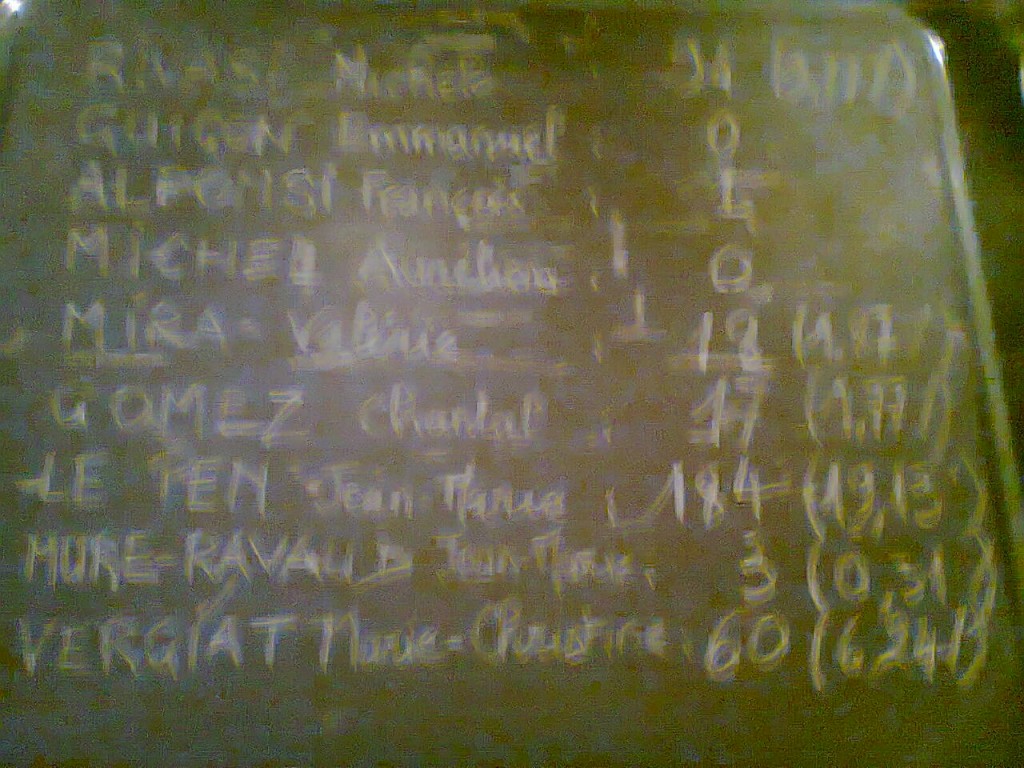 RIVASI Michèle :
GUIGON Emmanuel : 0
ALFONSI François : 1
MICHEL Aurélien : 0
MIRA Valérie : 18 (1,87)
GOMEZ Chantal : 17 (1,77)
LE PEN Jean-Marie : 184 (19,13)
MURE-RAVAUD Jean-Marie : 3 (0,31)
VERGIAT Marie-Christine : 60 (6,24)